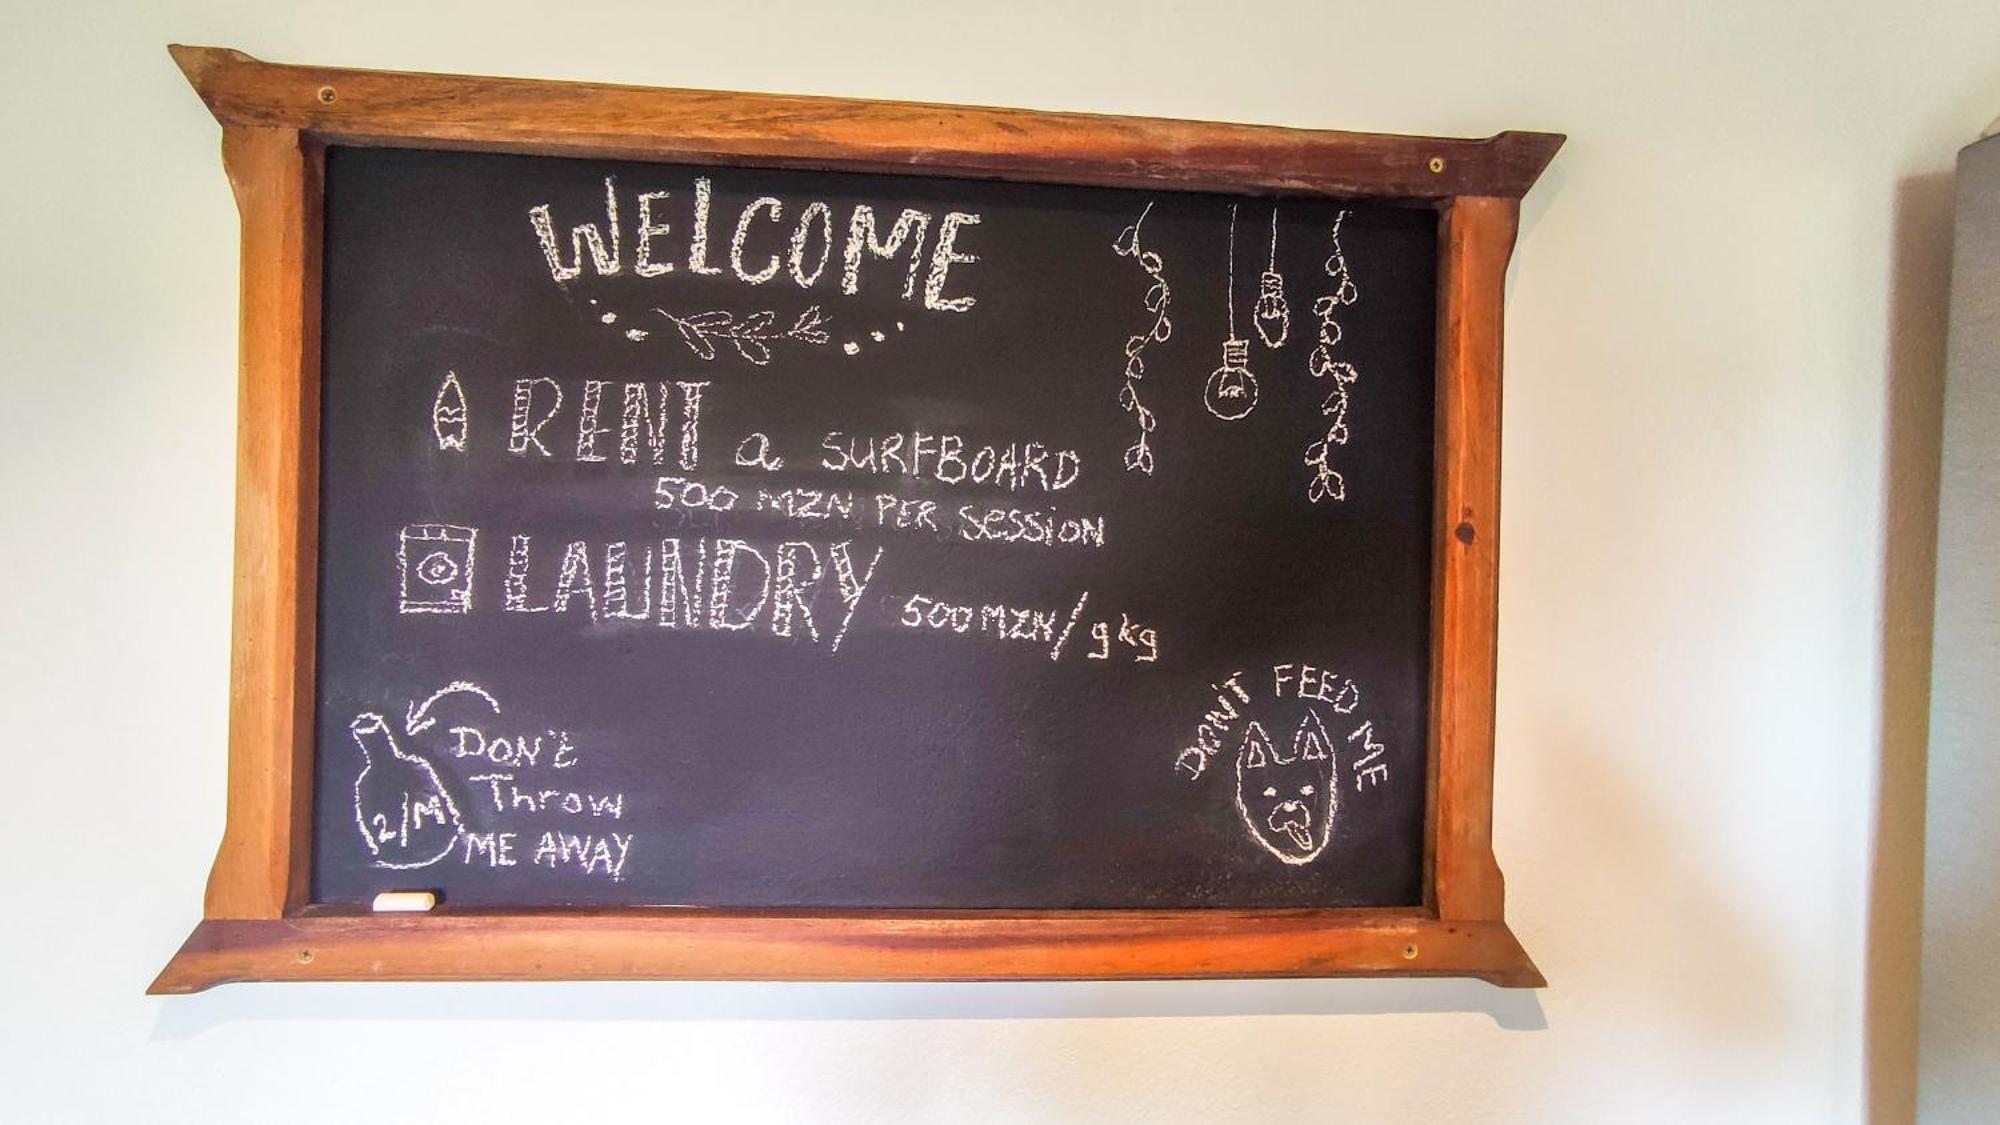 WELCOME
RENT a SURFBOARD
500 MZN PER SESSION
LAUNDRY 500 MZN/9kg
DON'T
Throw
ME AWAY
2M
DON'T FEED ME